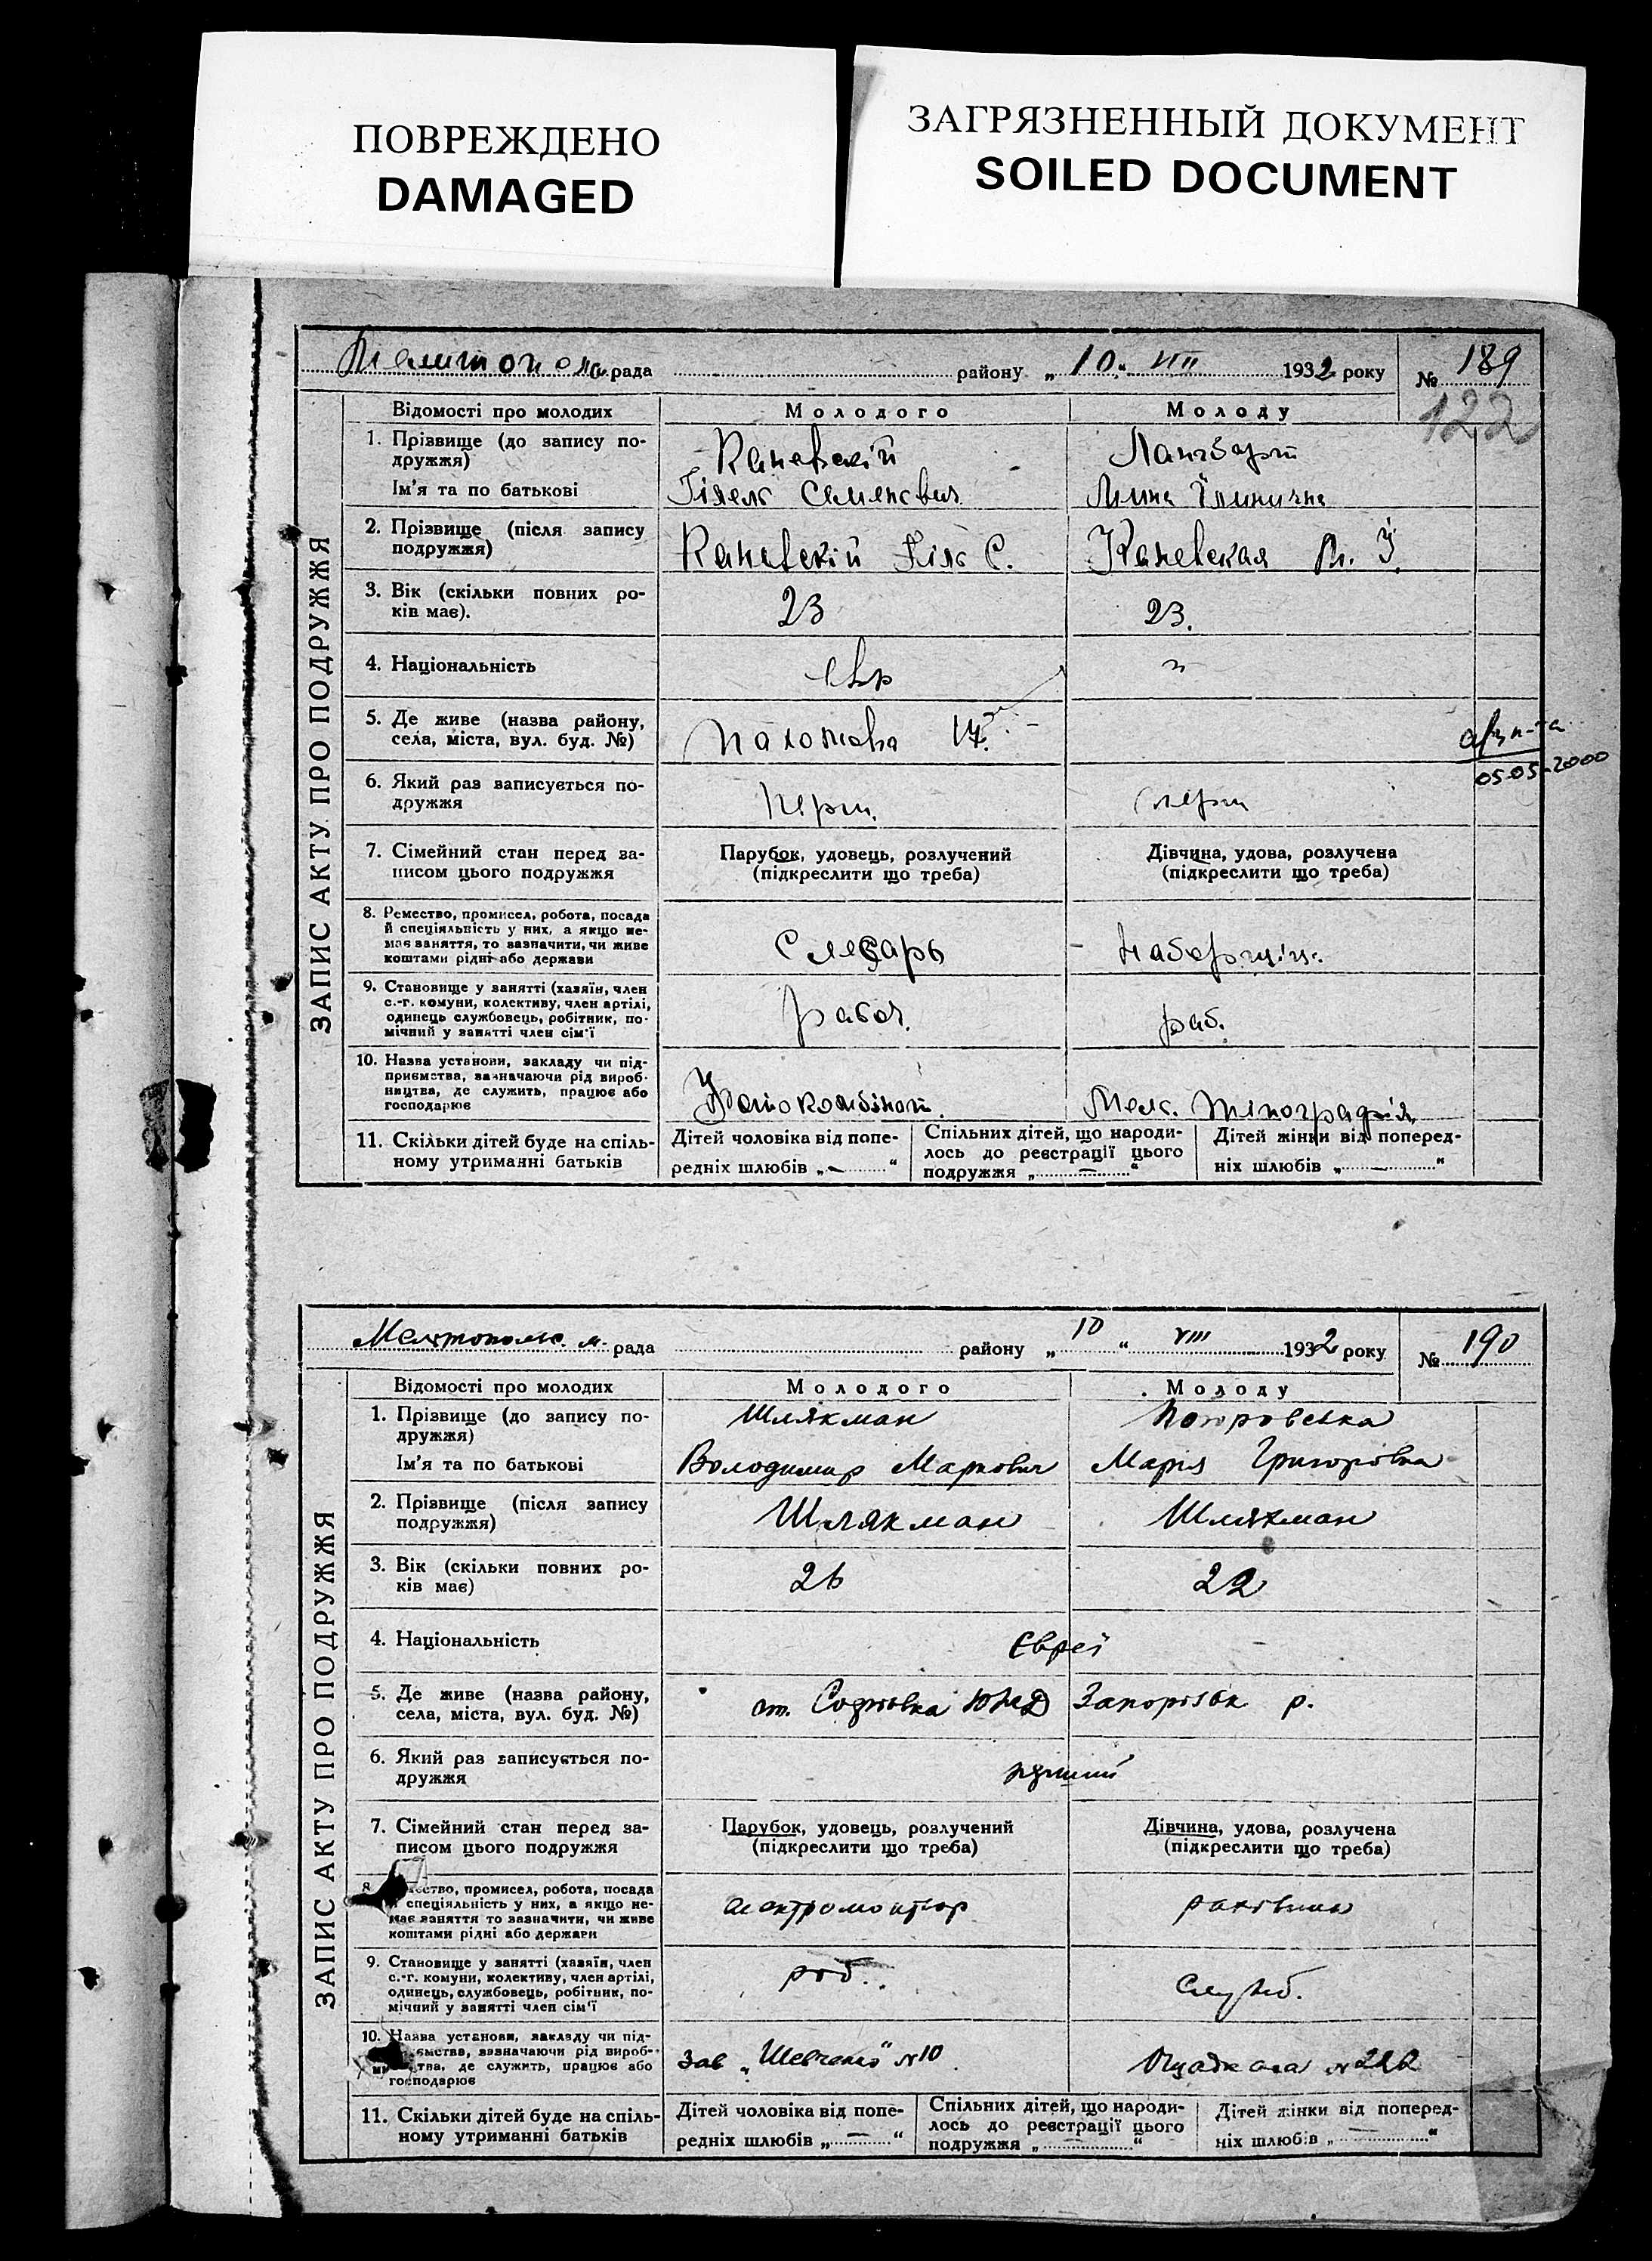 ПОВРЕЖДЕНО
DAMAGED
ЗАГРЯЗНЕННЫЙ ДОКУМЕНТ
SOILED DOCUMENT
рада району „10“ VIII 1932 року № 189
122
ЗАПИС АКТУ ПРО ПОДРУЖЖЯ
Відомості про молодих Молодого Молоду
1. Прізвище (до запису по-
дружжя) Каневскій
Ім'я та по батькові
2. Прізвище (після запису
подружжя) Каневскій С. Каневская
3. Вік (скільки повних ро-
ків має). 23 23.
4. Національність евр "
5. Де живе (назва району,
села, міста, вул. буд. №) 17.
05-05-2000
6. Який раз записується по-
дружжя перш. перш
7. Сімейний стан перед за-
писом цього подружжя
Парубок, удовець, розлучений
(підкреслити що треба)
Дівчина, удова, розлучена
(підкреслити що треба)
8. Ремество, промисел, робота, посада
й спеціяльність у них, а якщо не-
має заняття, то зазначити, чи живе
коштами рідні або держави
Слесарь
9. Становище у занятті (хазяїн, член
с.-г. комуни, колективу, член артілі,
одинець службовець, робітник, по-
мічний у занятті член сім'ї
рабоч. раб.
10. Назва установи, закладу чи під-
приємства, зазначаючи рід вироб-
ництва, де служить, працює або
господарює
Мел. типографія
11. Скільки дітей буде на спіль-
ному утриманні батьків
Дітей чоловіка від попе-
редніх шлюбів „—“
Спільних дітей, що народи-
лось до реєстрації цього
подружжя „—“
Дітей жінки від поперед-
ніх шлюбів „—“
Мелітопольс. м. рада району „10“ VIII 1932 року № 190
ЗАПИС АКТУ ПРО ПОДРУЖЖЯ
Відомості про молодих Молодого Молоду
1. Прізвище (до запису по-
дружжя) Шлякман
Ім'я та по батькові Володимир Маркович Марія Григорівна
2. Прізвище (після запису
подружжя) Шлякман Шлякман
3. Вік (скільки повних ро-
ків має) 26 22
4. Національність Євреї
5. Де живе (назва району,
села, міста, вул. буд. №) ст. Софіївка Запорізьк р.
6. Який раз записується по-
дружжя перший
7. Сімейний стан перед за-
писом цього подружжя
Парубок, удовець, розлучений
(підкреслити що треба)
Дівчина, удова, розлучена
(підкреслити що треба)
8. промисел, робота, посада
й спеціяльність у них, а якщо не-
має заняття то зазначити, чи живе
коштами рідні або держави
електромонтьор
9. Становище у занятті (хазяїн, член
с.-г. комуни, колективу, член артілі,
одинець, службовець, робітник, по-
мічний у занятті член сім'ї
роб. Служб.
10. Назва установи, закладу чи під-
приємства, зазначаючи рід вироб-
ництва, де служить, працює або
господарює
Зав „Шевченко“ №10 Ощадкаса №
11. Скільки дітей буде на спіль-
ному утриманні батьків
Дітей чоловіка від попе-
редніх шлюбів „—“
Спільних дітей, що народи-
лось до реєстрації цього
подружжя „—“
Дітей жінки від поперед-
ніх шлюбів „—“